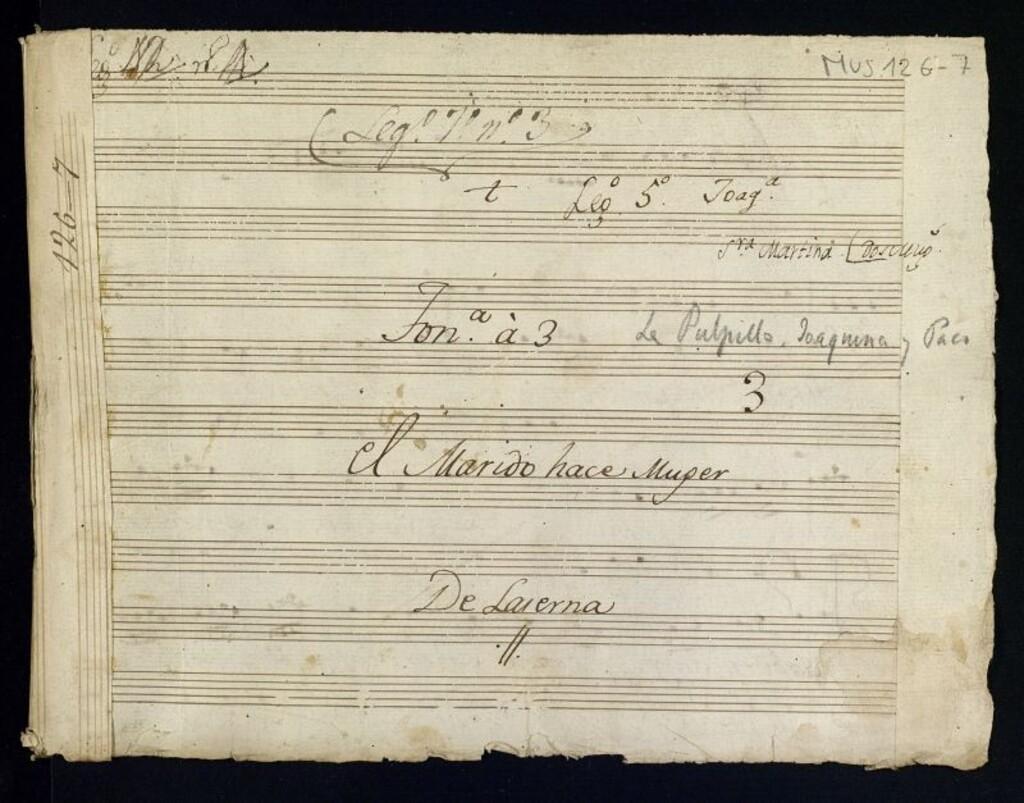 MUS 126-7
126-7
(Leg.º 7º n.º 3)
t Leg.º 5.º Joaq.ª
S.ra Martina
Ton.ª à 3 La Pulpillo, Joaquina y Paco
3
El Marido hace Muger
De Laserna